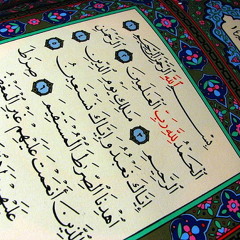 بِسْمِ اللهِ الرَّحْمٰنِ الرَّحِيمِ
اَلْحَمْدُ لِلّٰهِ رَبِّ الْعَالَمِينَ الرَّحْمٰنِ
الرَّحِيمِ مَالِكِ يَوْمِ الدِّينِ
اِيَّاكَ نَعْبُدُ وَاِيَّاكَ نَسْتَعِينُ
اِهْدِنَا الصِّرَاطَ الْمُسْتَقِيمَ صِرَاطَ
الَّذِينَ اَنْعَمْتَ عَلَيْهِمْ غَيْرِ الْمَغْضُوبِ
عَلَيْهِمْ